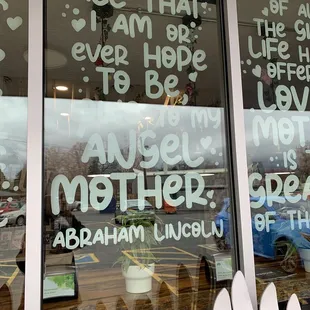 BE THAT
I AM OR
EVER HOPE
TO BE,
TO MY
ANGEL
MOTHER.
ABRAHAM LINCOLN
OF AL
THE G
LIFE H
OFFER
LOV
MOT
IS
GREA
OF TH